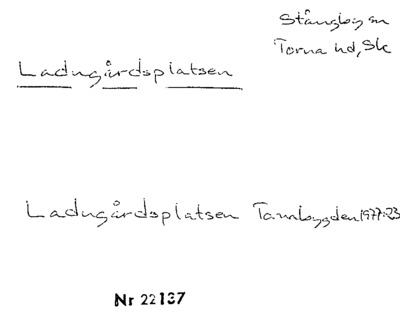 Stångby sn
Torna hd, Sk
Ladugårdsplatsen
Ladugårdsplatsen Tarmbygden 1977:23
Nr 22137